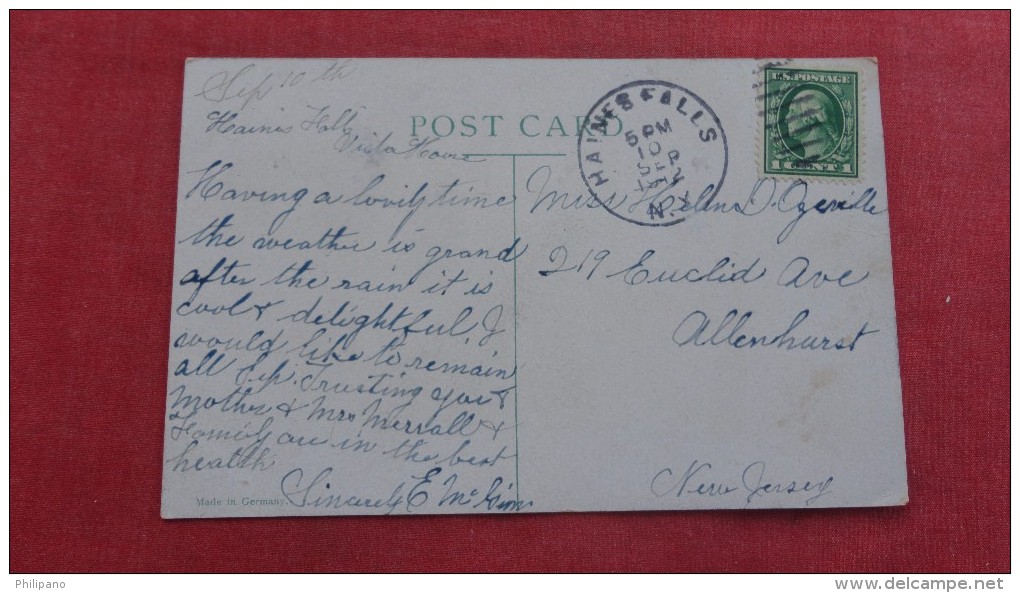 Sep 10th
Haines Falls
Vista House
POST CARD.
HAINES FALLS
5 PM
10
SEP
N.Y.
U.S. POSTAGE
1 CENT 1
Having a lovely time
the weather is grand
after the rain it is
cool & delightful. I
would like to remain
all Sep. Trusting you &
Mother & Mrs Merrall &
Family are in the best
health
Sincerely E Mc
Made in Germany.
Miss Helen D.
219 Euclid Ave
Allenhurst
New Jersey
Philipano
www.delcampe.net